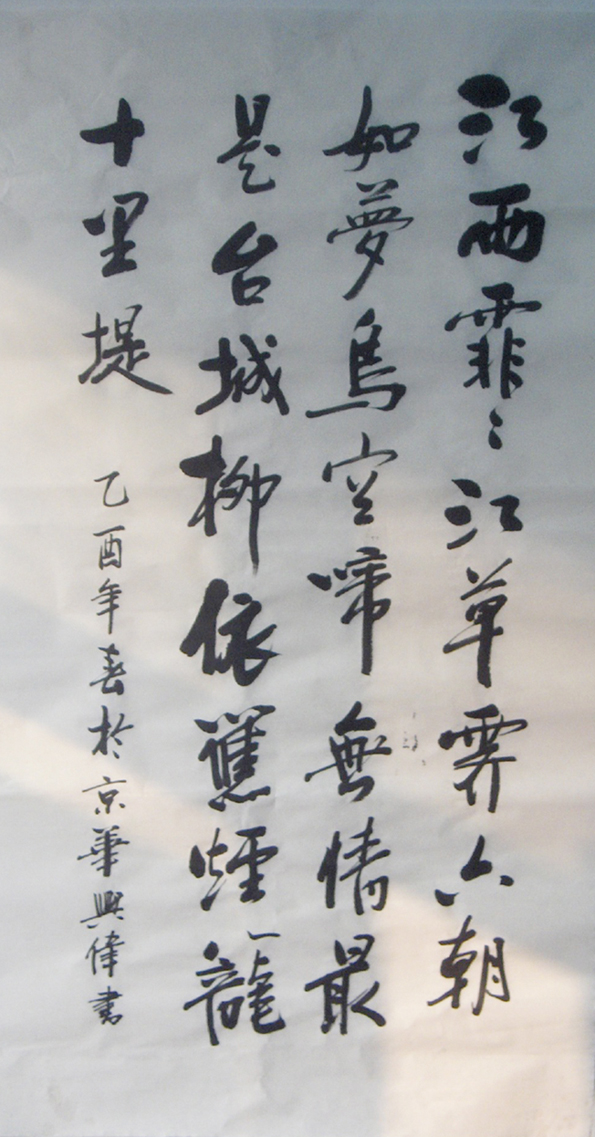 江雨霏〻江草霽六朝
如夢烏空啼無情最
是台城柳依舊煙籠
十里堤
乙酉年春於京華興偉書